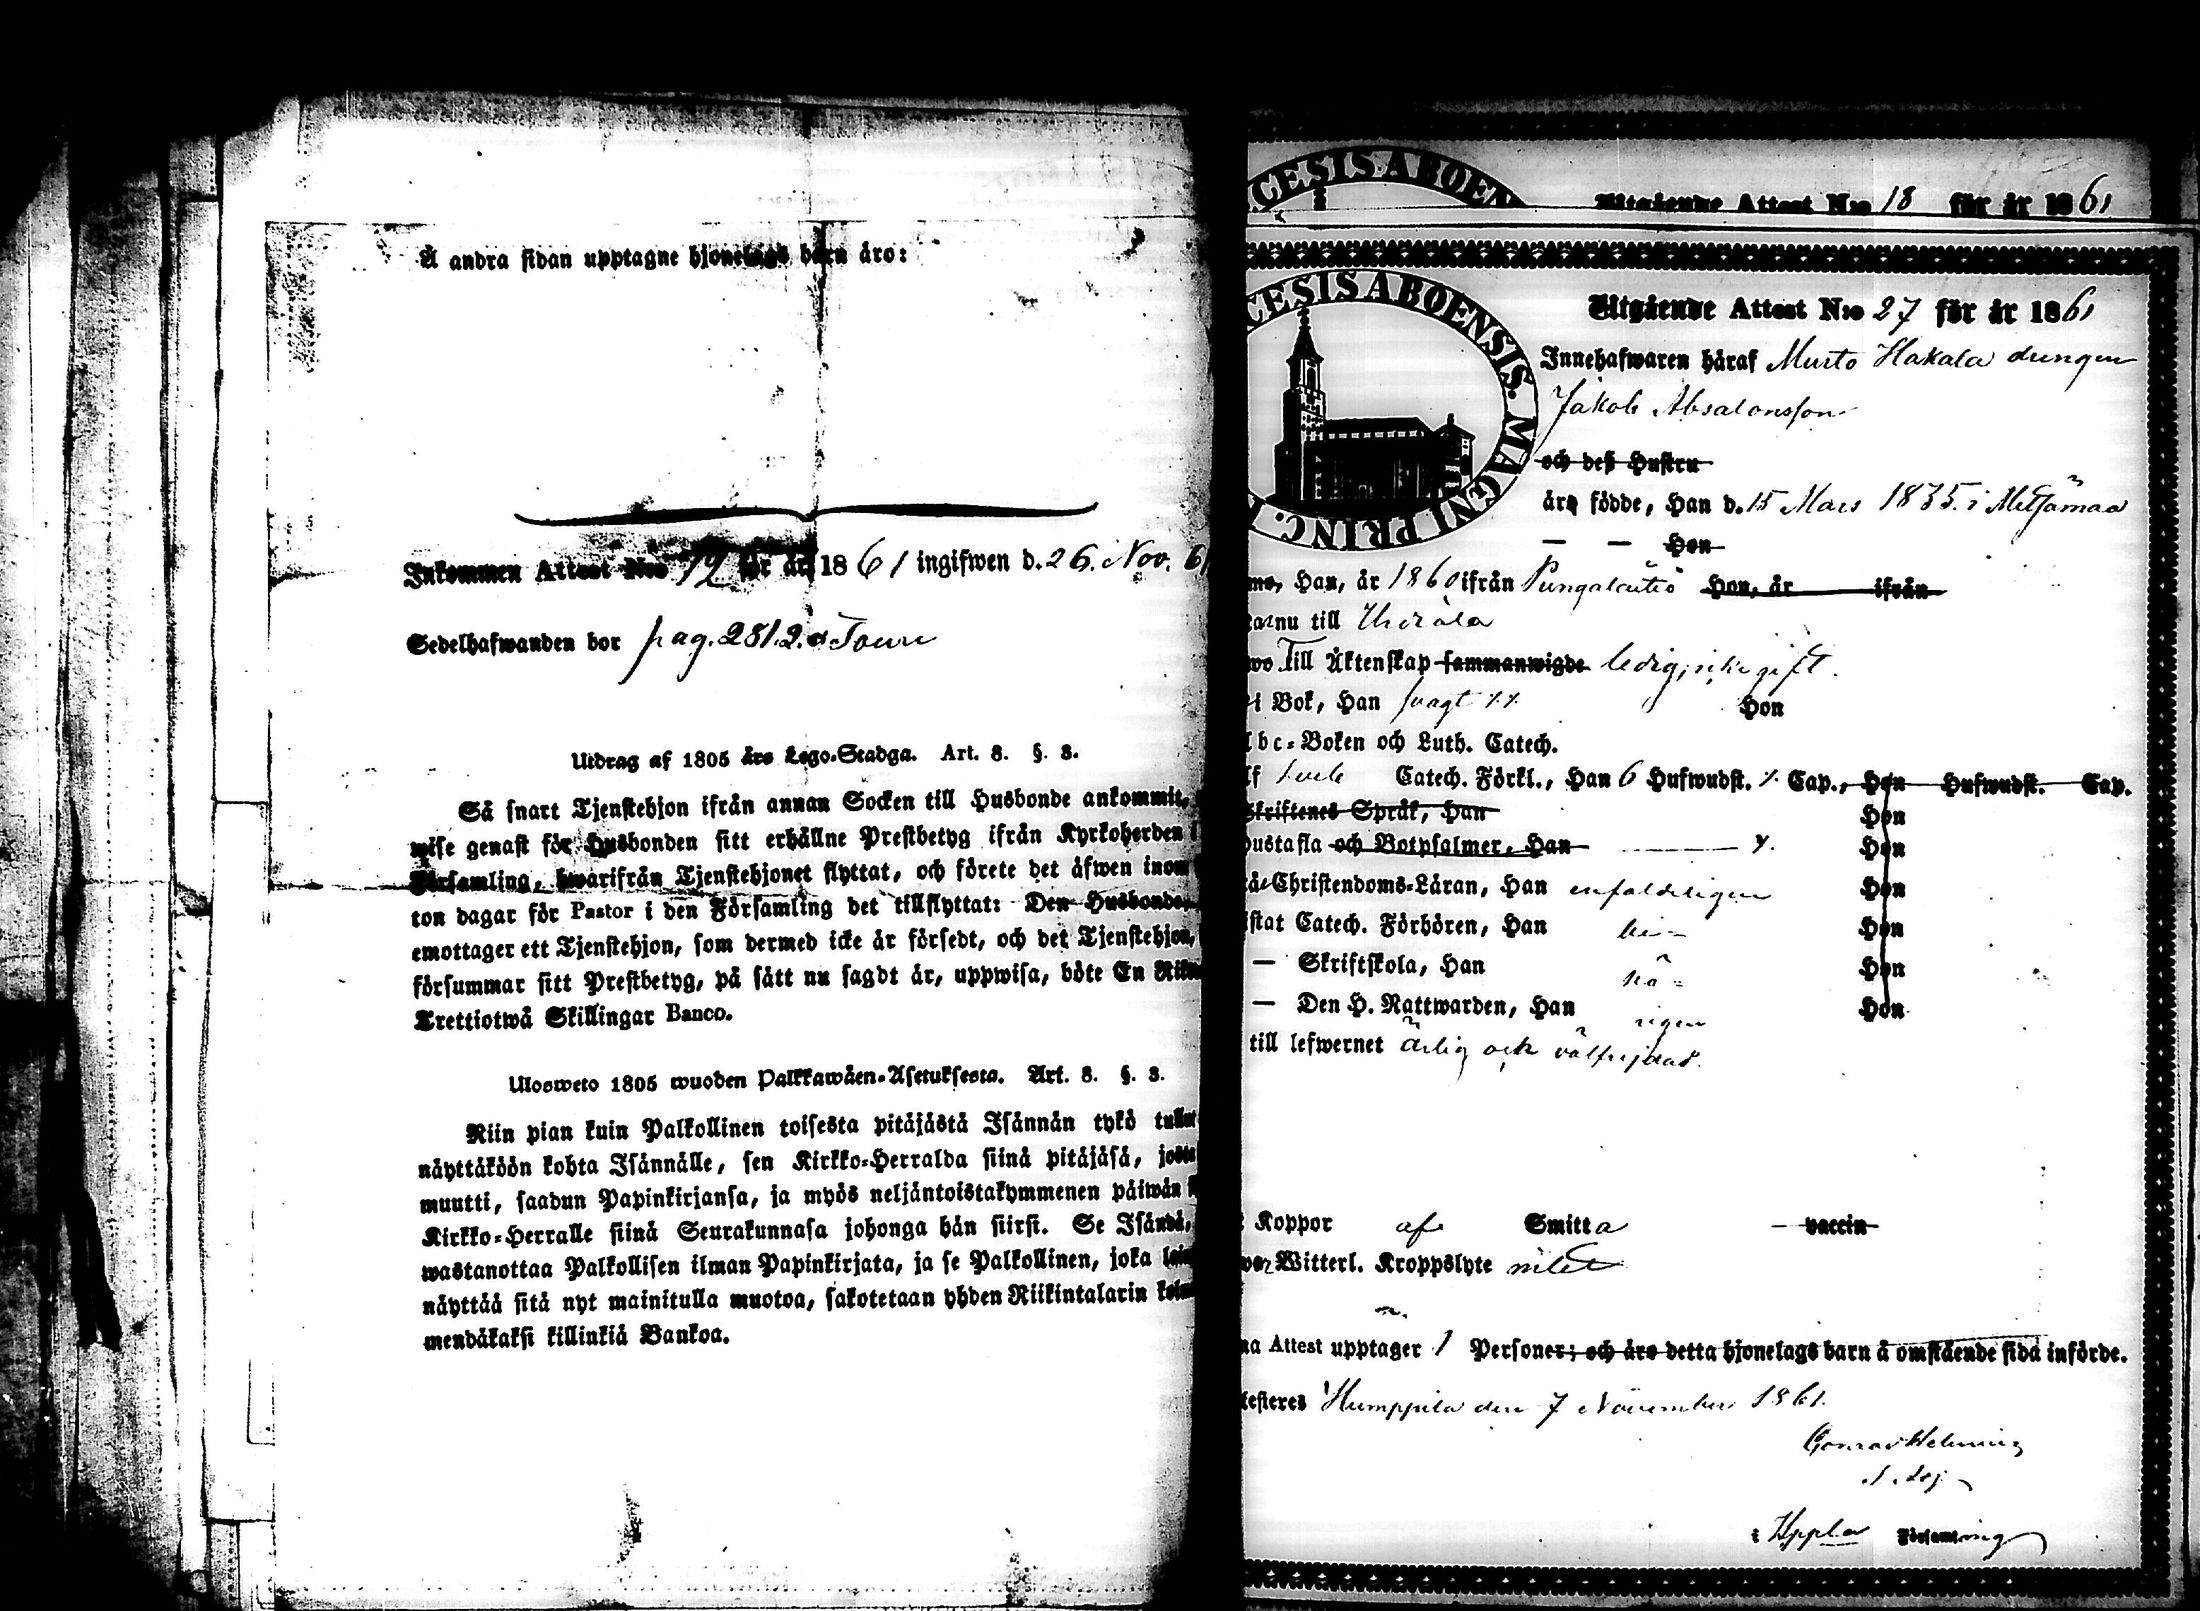 Å andra sidan upptagne hjonelags barn äro:
Inkommen Attest N:o 72 för år 1861 ingifwen d. 26. Nov. 61
Sedelhafwanden bor pag. 281.2.
Utdrag af 1805 års Lego-Stadga. Art. 8. §. 3.
Så snart Tjenstehjon ifrån annan Socken till Husbonde ankommit,
wise genast för Husbonden sitt erhållne Prestbetyg ifrån Kyrkoherden i
Församling, hwarifrån Tjenstehjonet flyttat, och förete det äfwen inom
ton dagar för Pastor i den Församling det tillflyttat: Den Husbonde,
emottager ett Tjenstehjon, som dermed icke är försedt, och det Tjenstehjon,
försummar sitt Prestbetyg, på sätt nu sagdt är, uppwisa, böte En Riks
Trettiotwå Skillingar Banco.
Ulosweto 1805 wuoden Palkkawäen-Asetuksesta. Art. 8. §. 3.
Niin pian kuin Palkollinen toisesta pitäjästä Isännän tykö tullut
näyttäköön kohta Isännälle, sen Kirkko-Herralda siinä pitäjäsä, josta
muutti, saadun Papinkirjansa, ja myös neljäntoistakymmenen päiwän s
Kirkko-Herralle siinä Seurakunnasa johonga hän siirsi. Se Isändä,
wastanottaa Palkollisen ilman Papinkirjata, ja se Palkollinen, joka
näyttää sitä nyt mainitulla muotoa, sakotetaan yhden Riikintalarin kolm
mendäkaksi killinkiä Bankoa.
CESIS ABOEN
Utgående Attest N:o 18 för år 1861
CESIS ABOENSIS. MAGNI PRINC.
Utgående Attest N:o 27 för år 1861
Innehafwaren häraf Murto Hakala drengen
Jakob Absalonsson
och deß Hustru
äro födde, Han d. 15 Mars 1835. i Metsämaa
— — Hon
Han, år 1860 ifrån Hon, år ifrån
nu till Urdiala
Till Äktenskap sammanwigde ledig, icke gift.
i Bok, Han svagt Hon
bc-Boken och Luth. Catech.
Catech. Förkl., Han 6 Hufwudst. Cap., Hon Hufwudst. Cap.
Skriftenes Språk, Han Hon
ustafla och Botpsalmer, Han Hon
Christendoms-Läran, Han enfaldeligen Hon
istat Catech. Förhören, Han be- Hon
— Skriftskola, Han hö- Hon
— Den H. Nattwarden, Han rigen Hon
till lefwernet ärlig och välfrejdad.
Koppor af Smitta — vaccin
Witterl. Kroppslyte
na Attest upptager 1 Personer; och äro detta hjonelags barn å omstående sida införde.
testeres Humppila den 7 November 1861.
i Hppla Församling